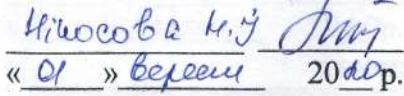 Нікосова Н.У
« 01 » вересн 2020р.